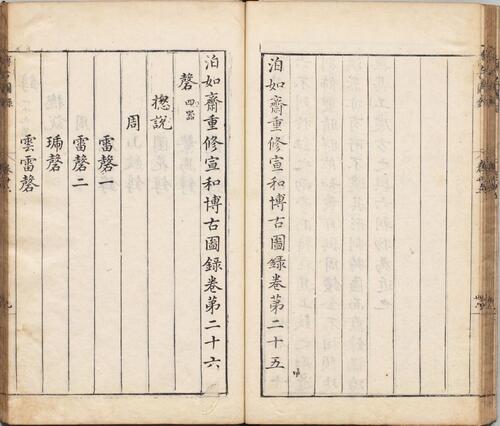 泊如齋重修宣和博古圖錄卷苐二十五
泊如齋重修宣和博古圖錄卷苐二十六
磬四器
揔說
周
雷磬一
雷磬二
琱磬
雲雷磬